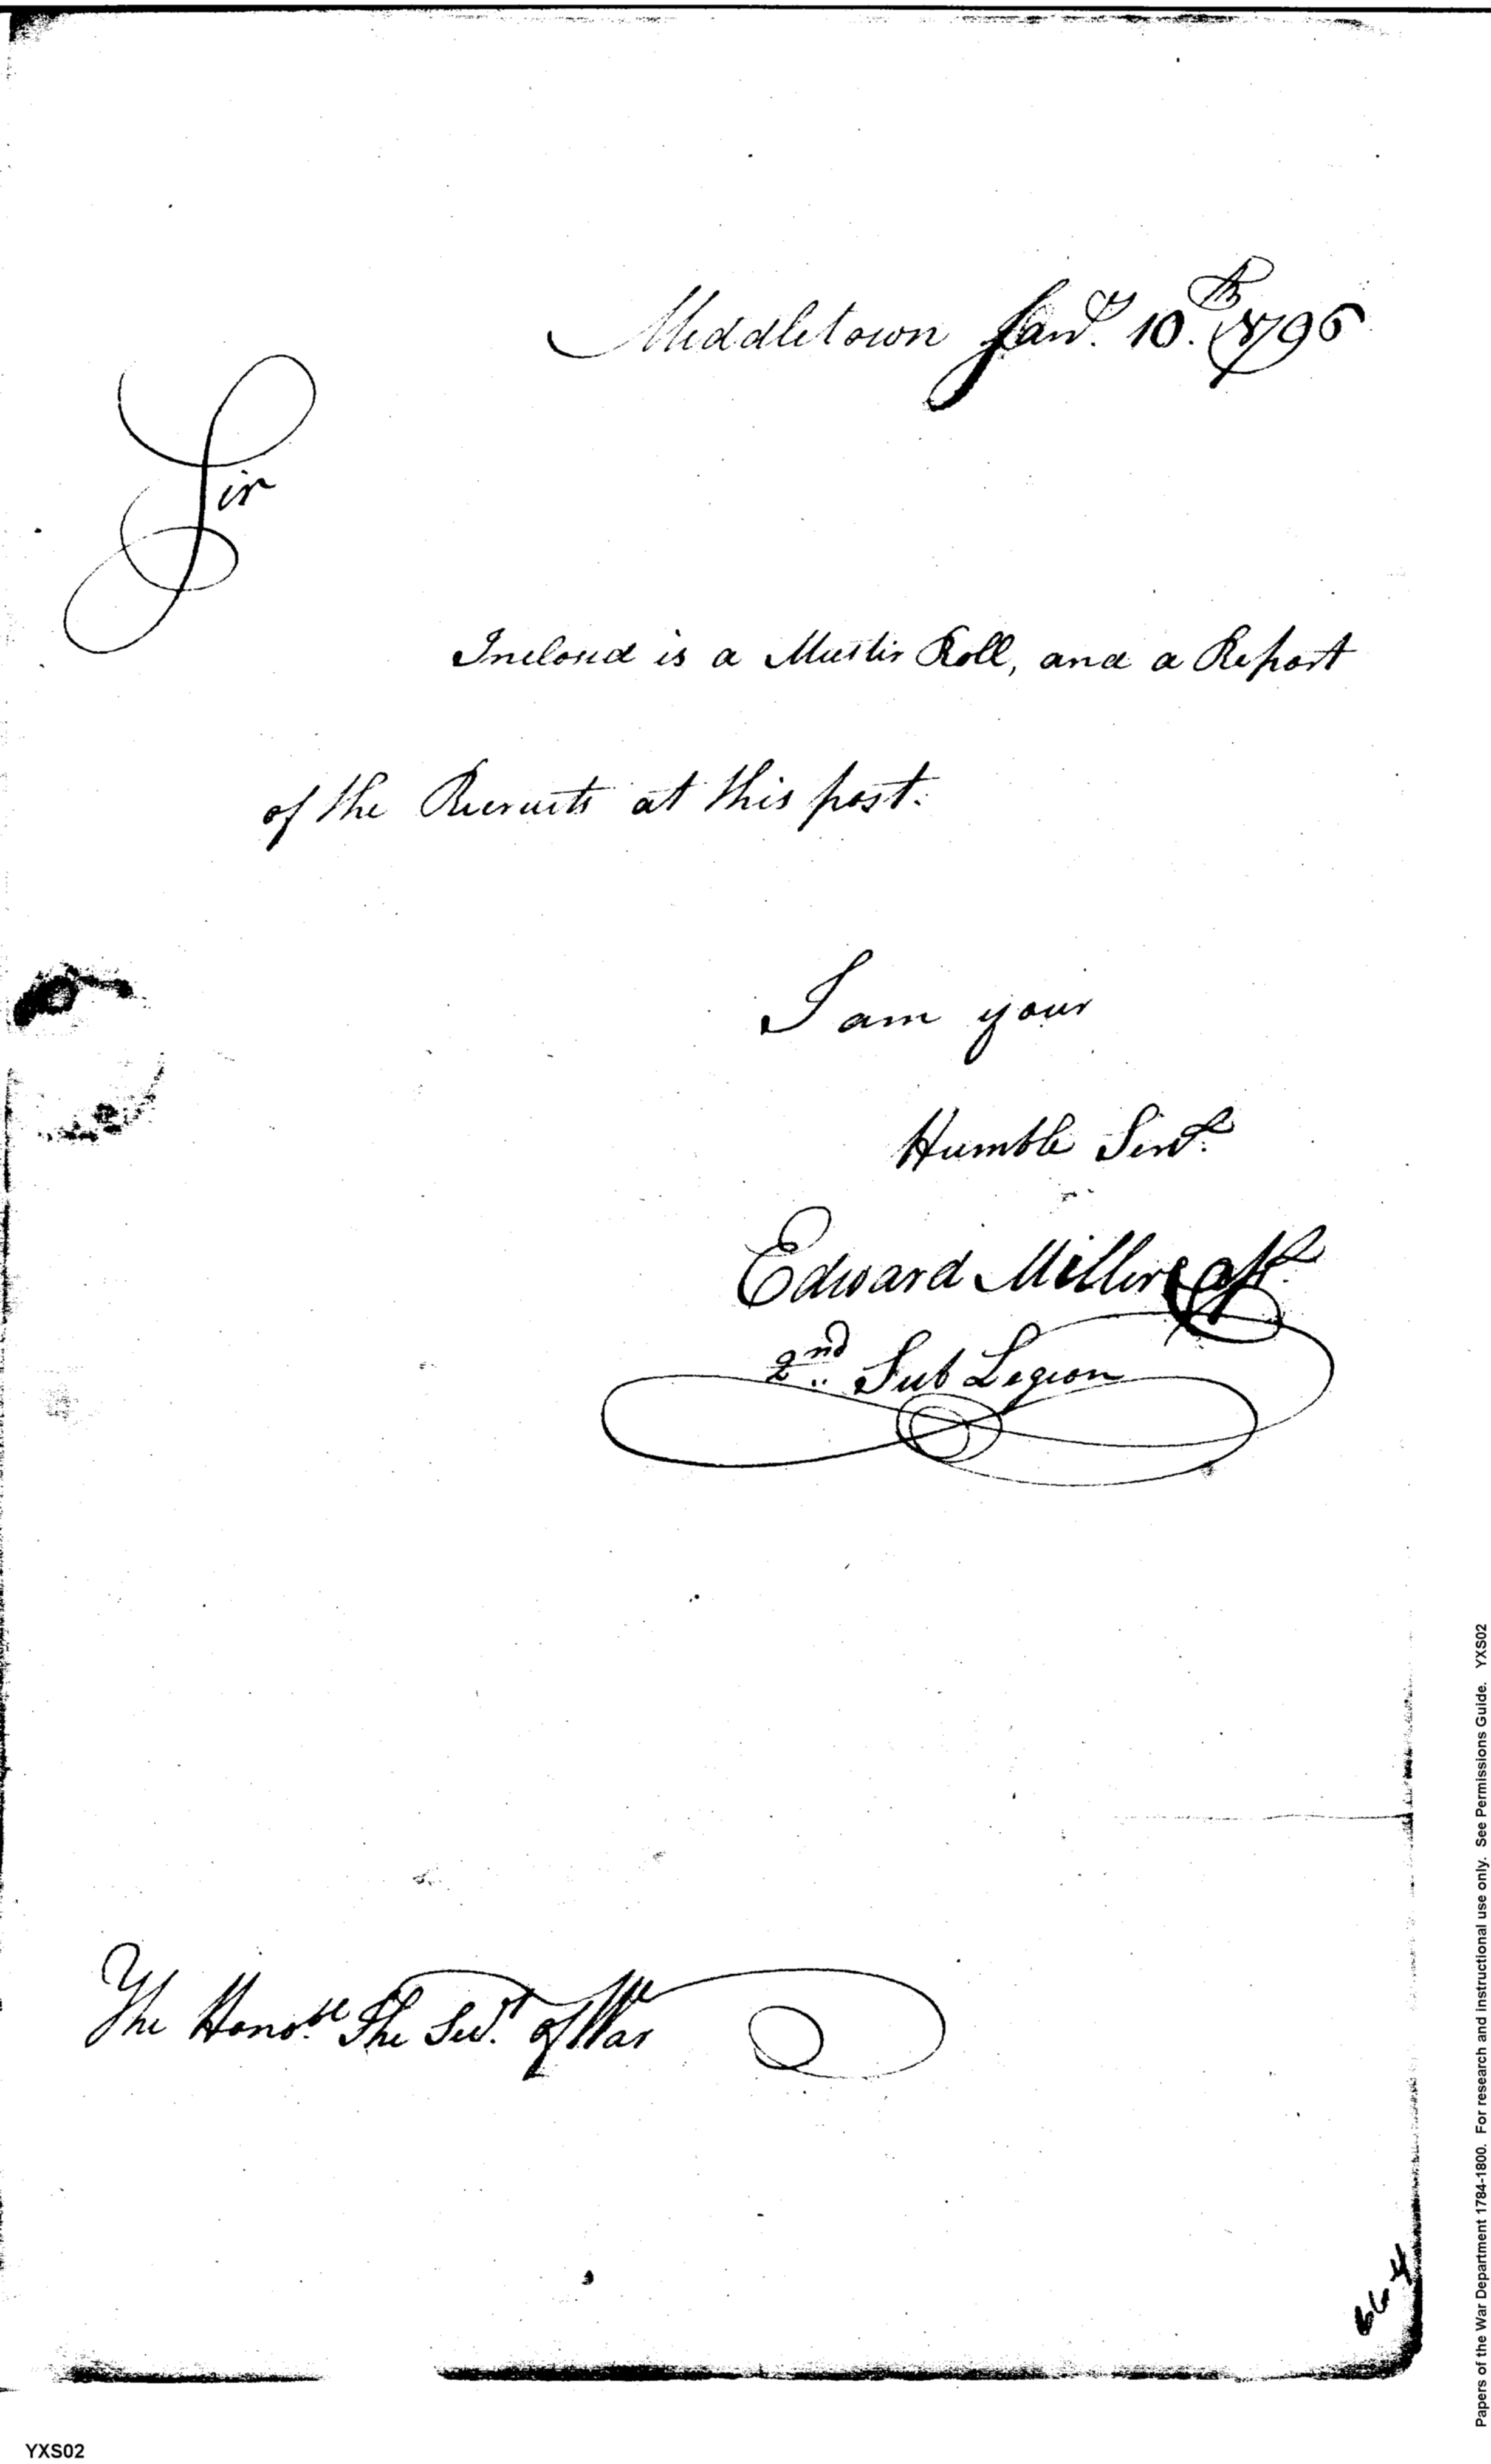 Middletown Jany. 10.th 1796
Sir
Inclosed is a Muster Roll, and a Report
of the Recruits at this post.
I am your
Humble Servt.
Edward Miller Capt.
2nd Sub Legion
The Honoble The Secy. of War
664
Papers of the War Department 1784-1800. For research and instructional use only. See Permissions Guide. YXS02
YXS02